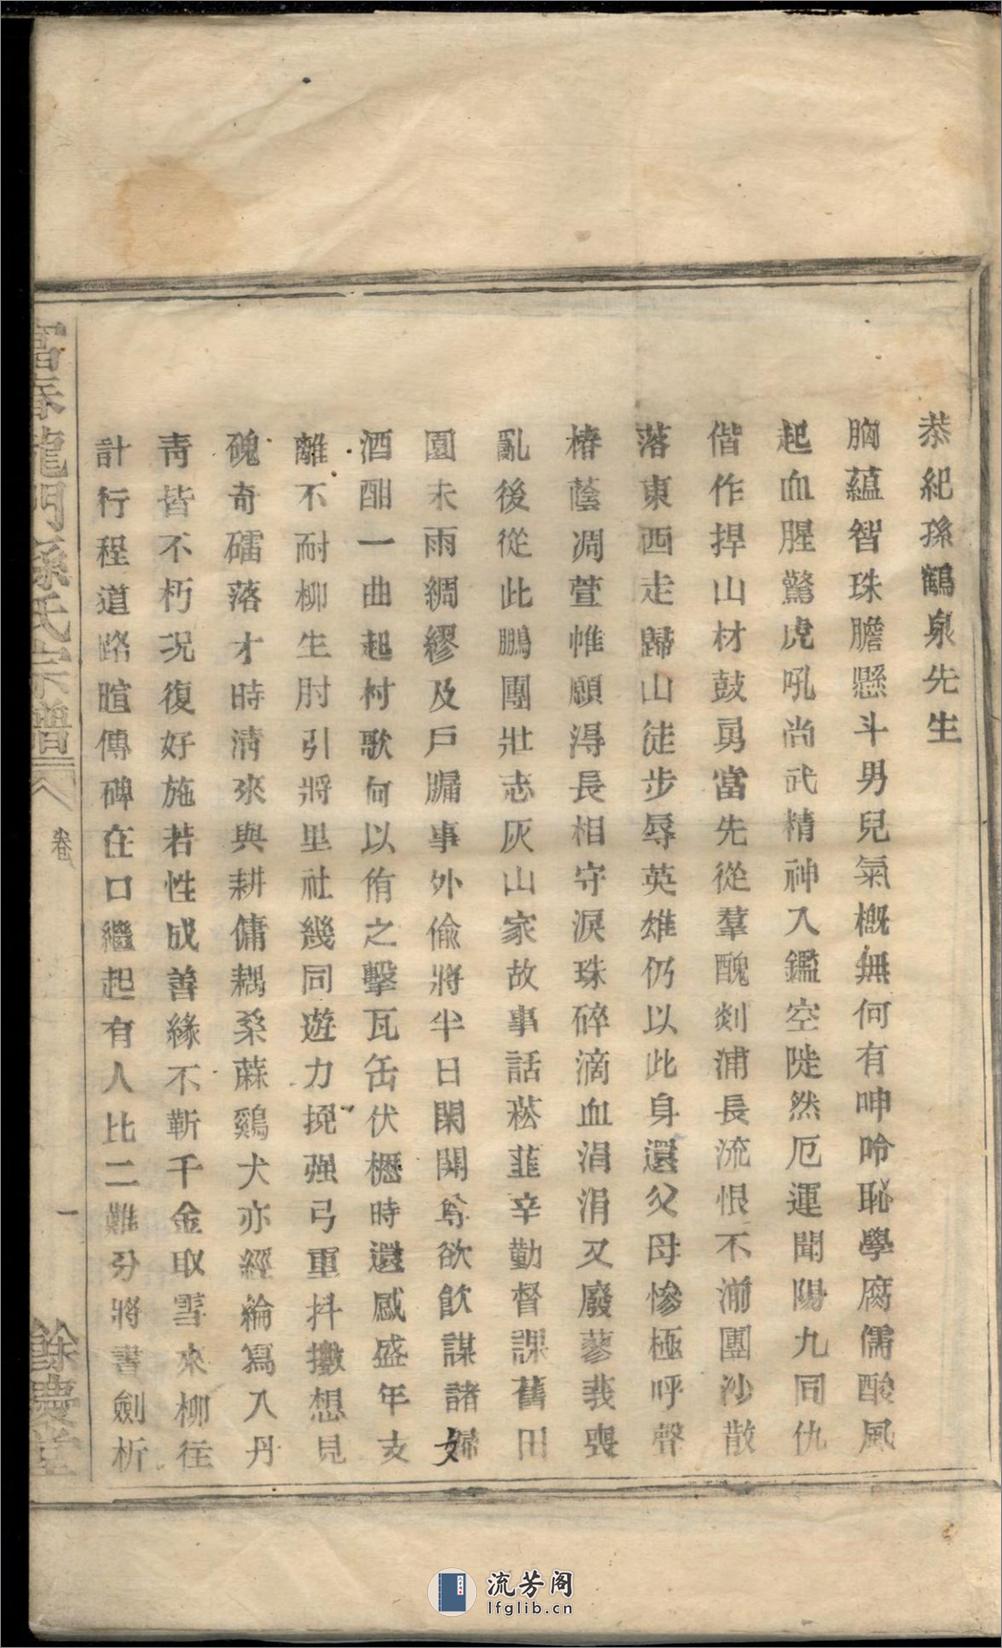 恭紀孫鶴泉先生
胸蘊智珠膽懸斗男兒氣概無何有呻吟恥學腐儒酸風
起血腥驚虎吼尚武精神入鑑空陡然厄運聞陽九同仇
偕作捍山材鼓勇當先從羣醜剡浦長流恨不湔團沙散
落東西走歸山徒步辱英雄仍以此身還父母慘極呼聲
椿蔭凋萱帷願得長相守淚珠碎滴血涓涓又廢蓼莪喪
亂後從此鵬團壯志灰山家故事話菘韮辛勤督課舊田
園未雨綢繆及戶牖事外偷將半日閑開尊欲飲謀諸婦
酒酣一曲起村歌何以侑之擊瓦缶伏櫪時還感盛年支
離不耐柳生肘引將里社幾同遊力挽强弓重抖擻想見
磈奇礌落才時清來與耕傭耦桑蔴鷄犬亦經綸寫入丹
青皆不朽況復好施若性成善緣不靳千金取雪來柳往
計行程道路暄傳碑在口繼起有人比二難分將書劍析
富春龍門孫氏宗譜
卷
一
餘慶堂
流芳阁
lfglib.cn